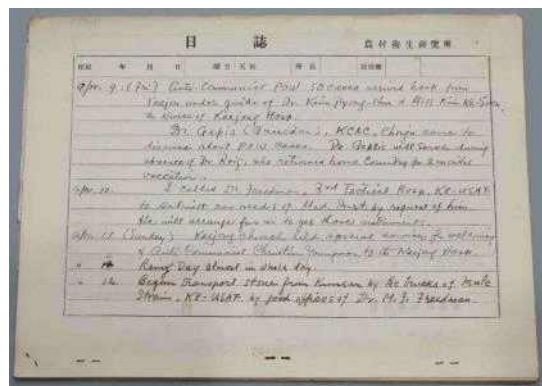 日誌 農村衛生研究所
年 月 日
Apr. 9. (Fri) Anti Communist POW 50 cases arrived back from
under guide of Dr. Kim & Miss Kim
the nurse of Kaejong Hosp.
Dr. Gepis (Canadian), KCAC, Chonju came to
discuss about POW cases. Dr. Gepis will service during
absence of Dr. Roig, who returned home Country for 2 months
vacation.
Apr. 10. I called Dr. Freedman, 3rd Tactical Hosp, K8-USAF
to submit our needs of Med. Inst. by request of him
He will arrange for us to get those instrument.
Apr. 11 (Sunday) Kaejong Church held special service for welcoming
of Anti Communist Christian Youngmen to the Kaejong Hosp.
" Rainy Day almost in whole day.
" 12. Begun transport stones from Kunsan by the trucks of
K8-USAF by good offices of Dr. M. J. Freedman.